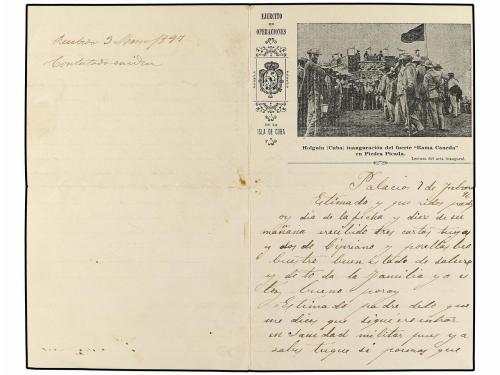 Recibida 3 Marzo 1897
Contestado en idem
EJERCITO
DE
OPERACIONES
EN LA
ISLA DE CUBA
Holguin (Cuba) inauguración del fuerte "Rama Caneda"
en Piedra Picada.
Lectura del acta inaugural.
Palacios 7 de
Estimado y querido padre
oy dia de la fecha y diez de
mañana e recibido tres cartas suyas
y dos de Cipriano y por ellas beo
buestro buen estado de
y de to da la familia yo es
toy bueno por oy
Estimado padre delo que
me dices que si quiero entrar
en Sanidad militar pues ya
sabes que si